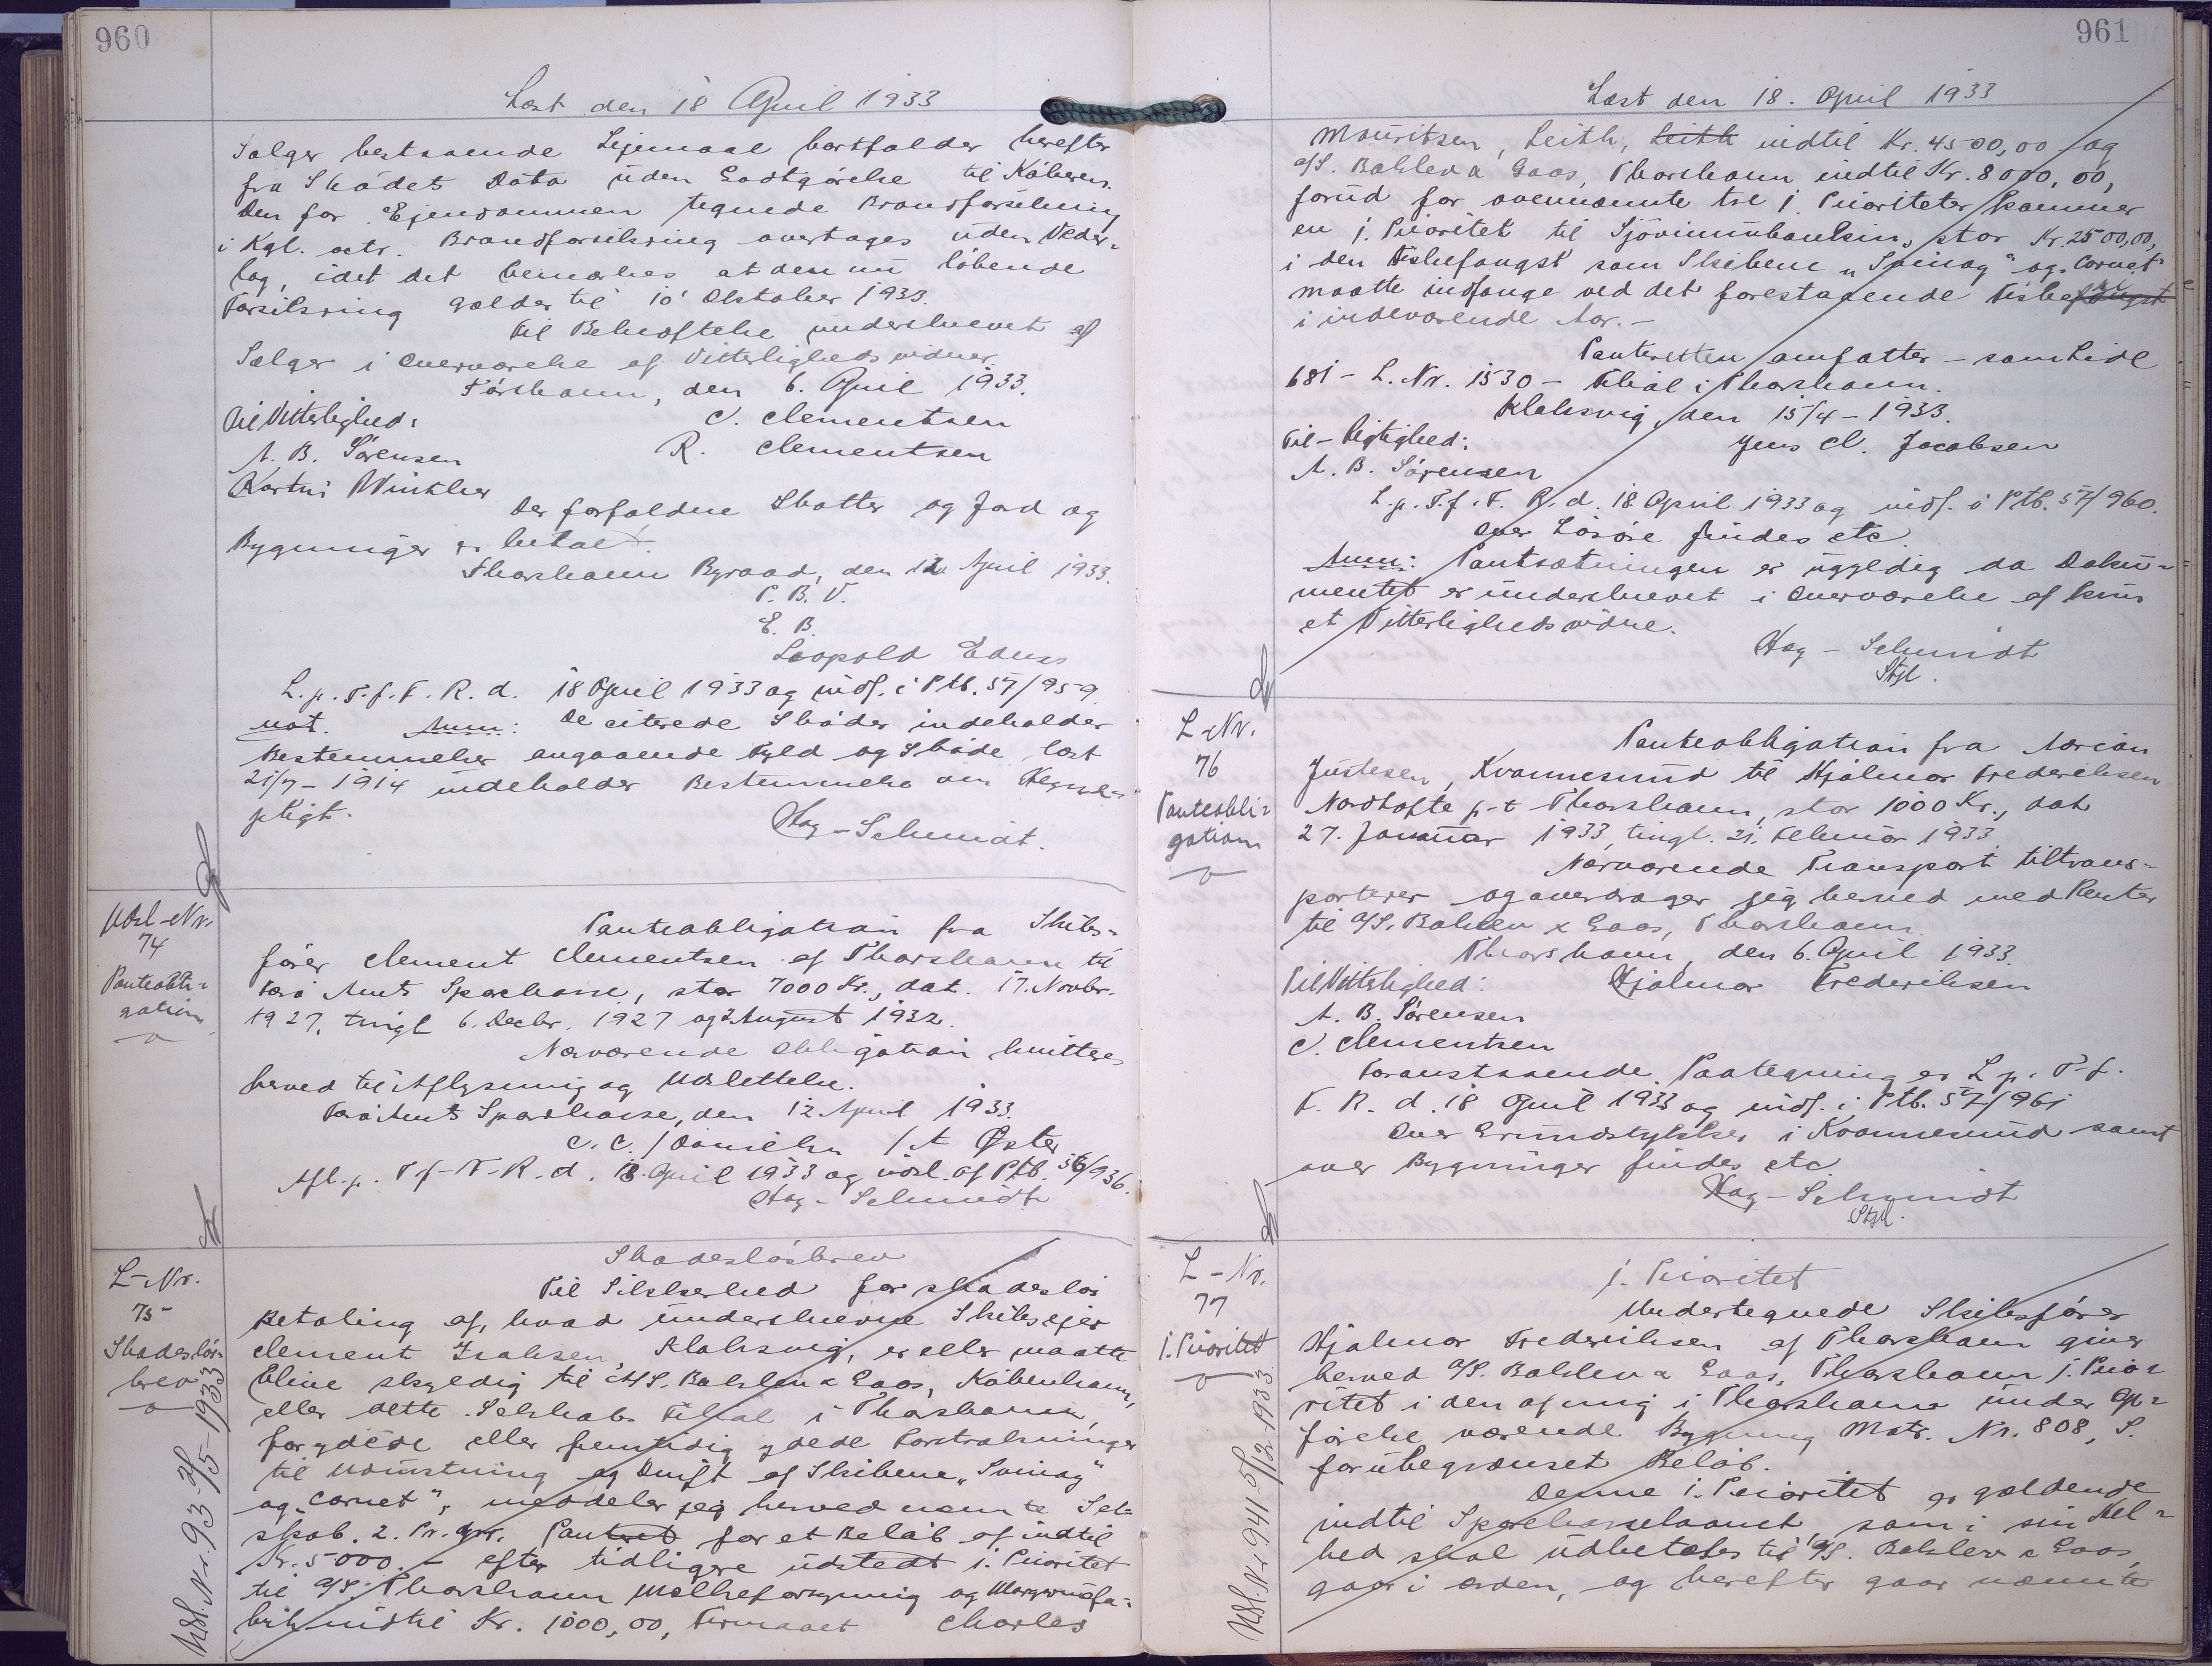 960
Læst den 18 April 1933
Sælger bestaaende Lejemaal bortfalder herefter
fra Skødets Dato uden Godtgørelse til Køberen.
Den for Ejendommen tegnede Brandforsikring
i Kgl. octr. Brandforsikring overtages uden Veder=
lag, idet det bemærkes at den nu løbende
Forsikring gælder til 10' Oktober 1933.
Til Bekræftelse underskrevet af
Sælger i Overværelse af Vitterligheds vidner.
Tórshavn, den 6. April 1933.
Til Vitterlighed: C. Clementsen
A. B. Sörensen R. Clementsen
Winther
De forfaldne Skatter og Jord og
Bygninger er betalt.
Thorshavn Byraad, den 12 April 1933.
P. B. V.
E. B.
Leopold
L. p. T. f. F. R. d. 18 April 1933 og indf. i Ptb. 57/959.
not. Anm: De citerede Skøder indeholder
Bestemmelser angaaende Fyld og Skøde læst
21/7 - 1914 indeholder Bestemmelse om Hegns=
pligt.
Hag-Schmidt.
Udsl-Nr.
74
Panteobli=
gation
Panteobligation fra Skibs=
fører Clement Clementsen af Thorshavn til
Færø Amts Sparekasse, stor 7000 Kr., dat. 17. Novbr.
1927, tingl 6. Decbr. 1927 og 2 August 1932.
Nærværende Obligation kvitteres
herved til Aflysning og Udslettelse.
Færø Amts Sparekasse, den 12 April 1933.
C. C. Danielsen / A Øster
Afl. p. T f- F- R. d. 18. April 1933 og udsl. af Ptb. 56/936.
Hag-Schmidt
L-Nr.
75
Skadesløs=
brev
Udsl. Nr. 93 - /5-1933
Skadesløsbrev
Til Sikkerhed for skadesløs
Betaling af, hvad underskrevne Skibsejer
Clement Isaksen, Klaksvig, er eller maatte
blive skyldig til A/S. Bakken & Gaas, København,
eller dette Selskabs Filial i Thorshavn,
for ydede eller fremtidig ydede Forstrækninger
til Udrustning og Drift af Skibene „Svinoy"
og „Cornet", meddeler jeg herved nævnte Sel=
skab 2. Pr. Panteret for et Beløb af indtil
Kr. 5000.- efter tidligere udstedt 1. Prioritet
til A/S. Thorshavn Mælkeforsyning og Margarinefa=
brik indtil Kr. 1000,00, Firmaaet Charles
961
Læst den 18. April 1933
Mouritsen, Leith, Leith indtil Kr. 4500,00 og
A/S. Bakken & Gaas, Thorshavn indtil Kr. 8000,00,
forud for ovennævnte tre 1. Prioriteter kommer
en 1. Prioritet til Sjóvinnubankin, stor Kr. 2500,00,
i den Fiskefangst som Skibene „Svinoy" og „Cornet"
maatte indfange ved det forestaaende Fiskefangst
i indeværende Aar.-
Panteretten omfatter - samtidl
681 - L. Nr. 1530 - Filial i Thorshavn.
Klaksvig, den 15/4 - 1933.
Til-Rigtighed: Jens M. Jacobsen
A. B. Sörensen
L. p. T. f. F. R. d. 18 April 1933 og indf. i Ptb. 57/960.
over Løsøre findes etc.
Anm: Pantsætningen er ugyldig da Doku=
mentet er underskrevet i Overværelse af kun
et Vitterlighedsvidne.
Hag-Schmidt
Stfl.
L-Nr.
76
Panteobli=
gation
Panteobligation fra Aorian
Justesen, Kvannesund til Hjalmar Frederiksen
Nordtofte p-t Thorshavn, stor 1000 Kr., dat
27. Januar 1933, tingl. 21. Februar 1933.
Nærværende Transport tiltrans=
porterer og overdrager jeg herved med Renter
til A/S. Bakken & Gaas, Thorshavn.
Thorshavn, den 6. April 1933.
Til Vitterlighed: Hjalmar Frederiksen
A. B. Sörensen
C. Clementsen
Foranstaaende Paategning er L. p. T. f.
F. R. d. 18 April 1933 og indf. i Ptb. 57/961
Over Grundstykker i Kvannesund samt
over Bygninger findes etc.
Hag-Schmidt
Stfl.
L-Nr.
77
1. Prioritet
Udsl. Nr 941 - 5/12 1933
1. Prioritet
Undertegnede Skibsfører
Hjalmar Frederiksen af Thorshavn giver
herved A/S. Bakken & Gaas, Thorshavn 1. Prio=
ritet i den af mig i Thorshavn under Op=
førelse værende Bygning Matr. Nr. 808, S.
for ubegrænset Beløb.
Denne 1. Prioritet er gældende
indtil Sparekasselaanet, som i sin Hel=
hed skal udbetales til A/S. Bakken & Gaas,
gaar i Orden, og herefter gaar nævnte